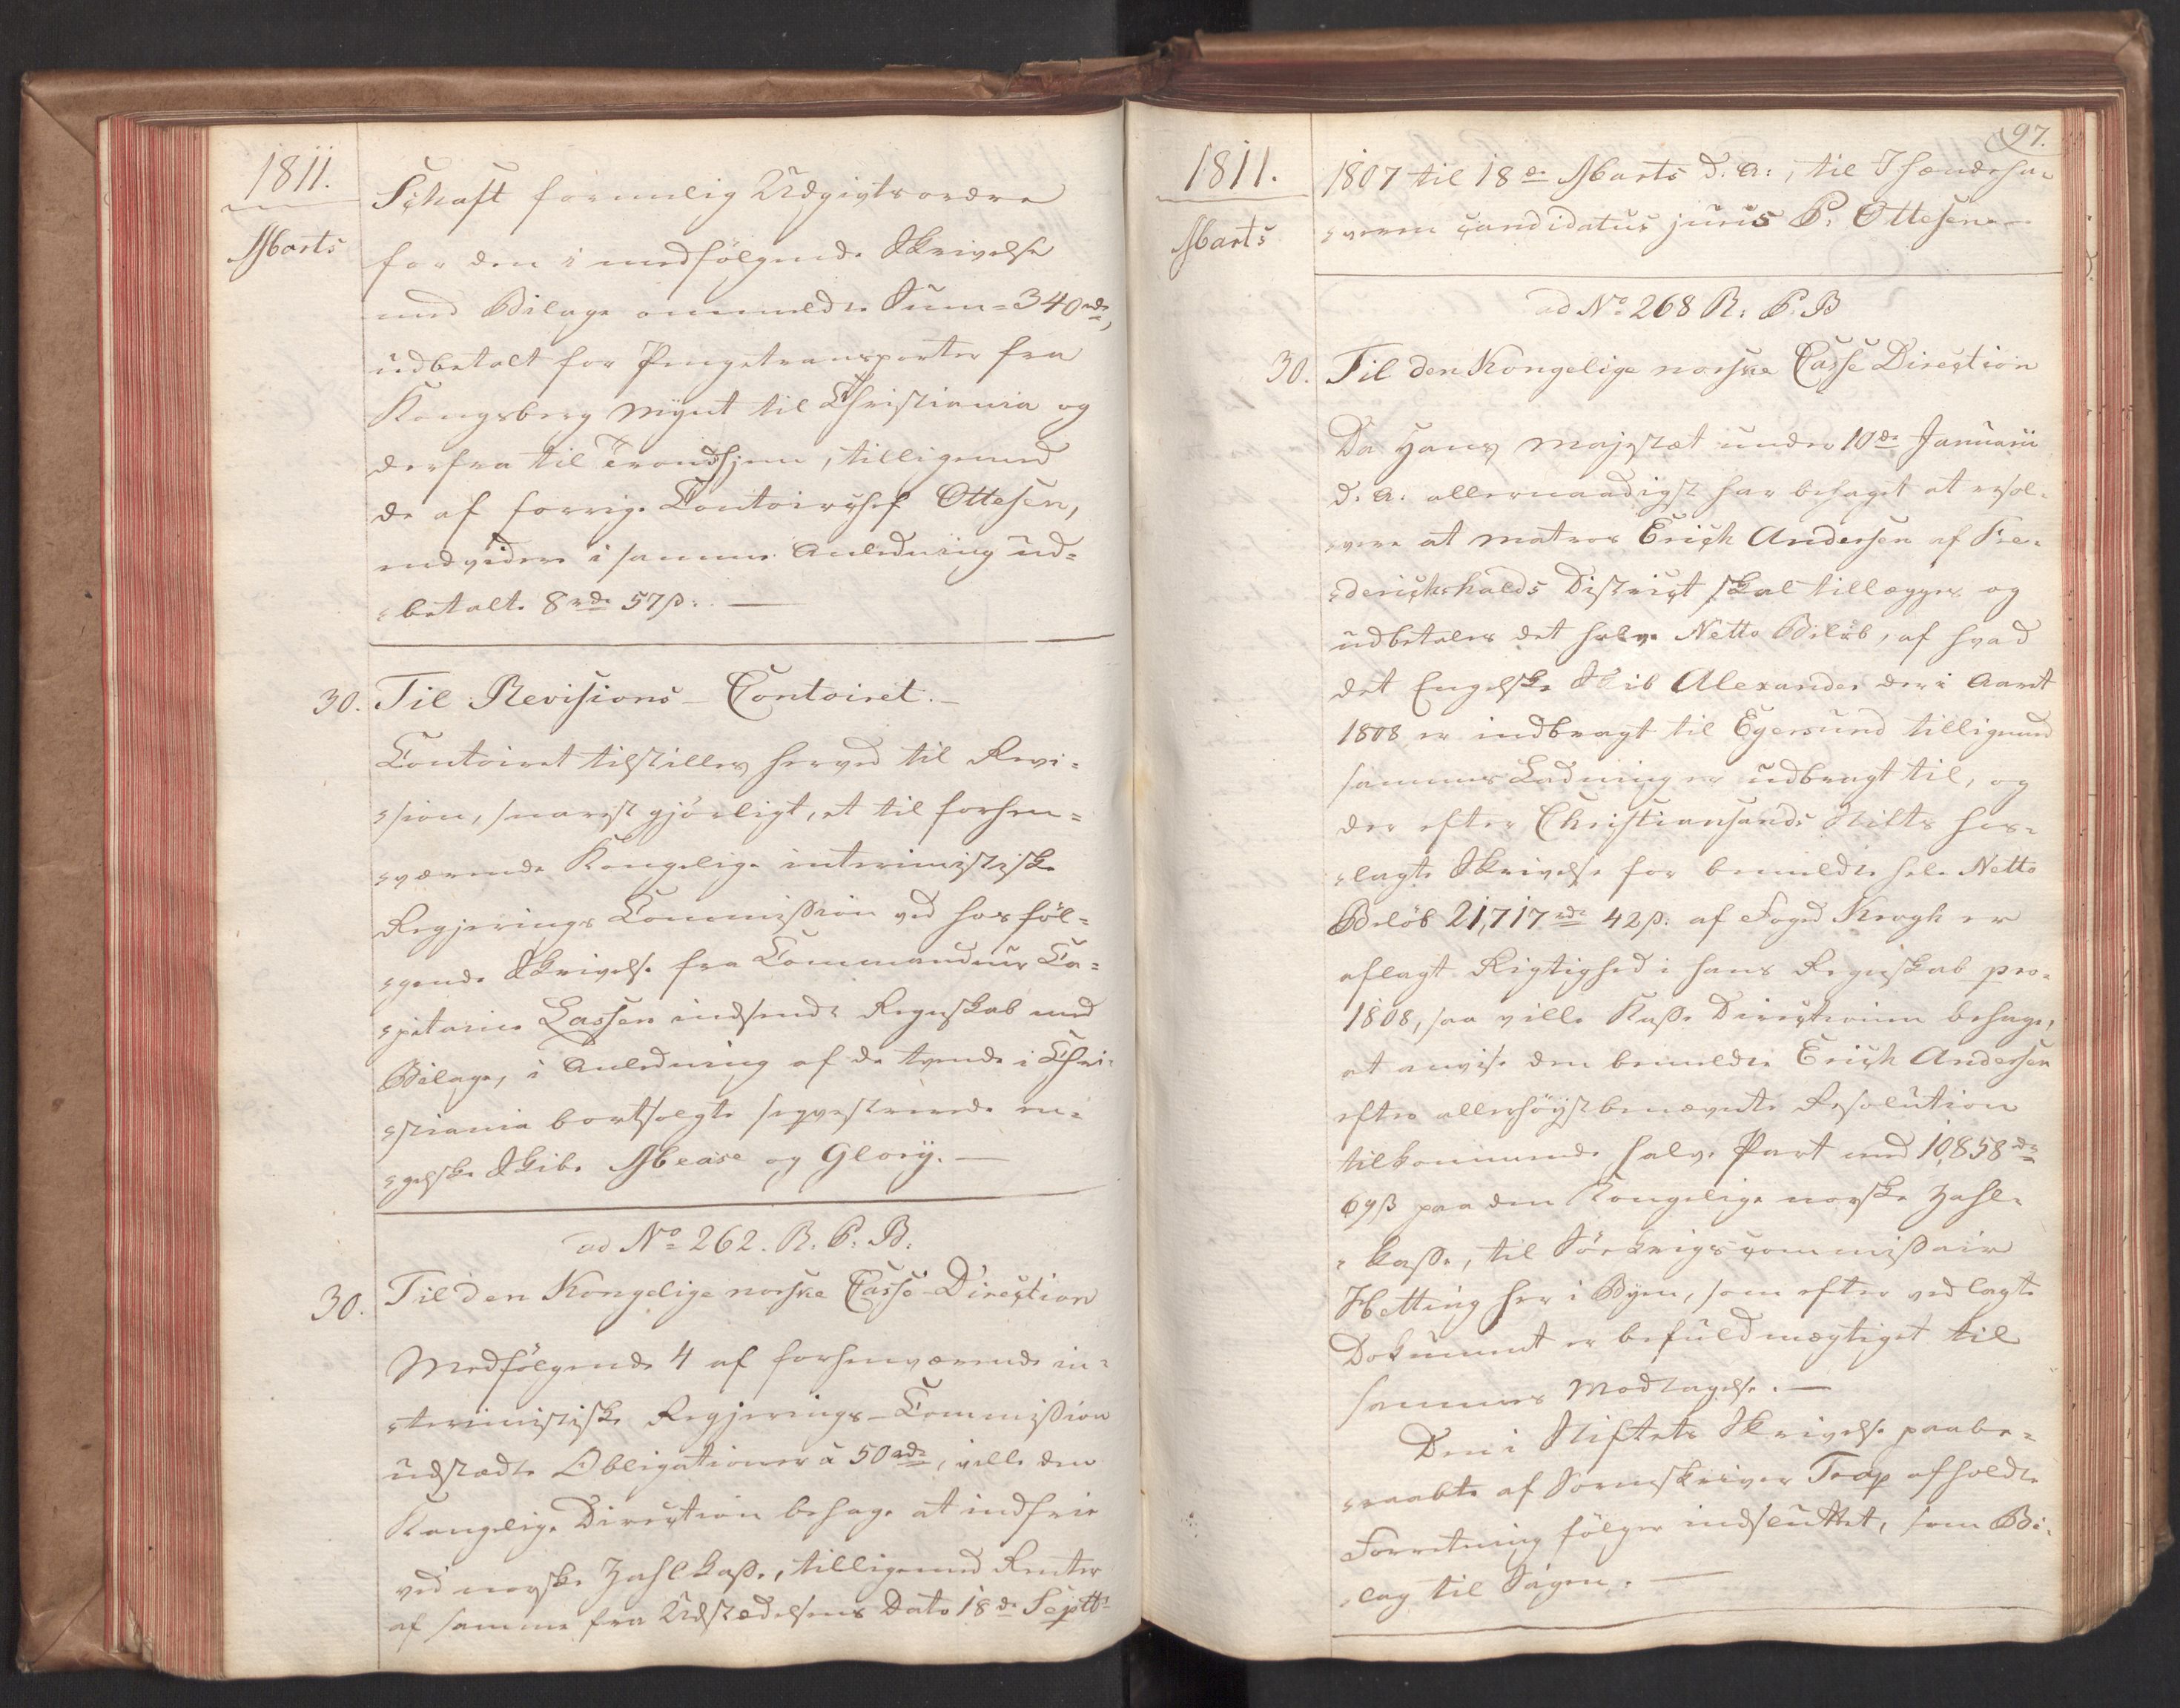 1811.
Marts
Schaft formelig Udgivtsordre
for den i medfølgende Skrivelse
med Bilage ommeldte Sum = 340 rdr,
udbetalt for Pengetransporter fra
Kongsberg Mynt til Christiania og
derfra til Trondhjem, tilligemed
de af forrige Contoirchef Ottesen,
endvidere i samme Anledning ud=
=betalte 8 rdr 57 ß. —
30. Til Revisions-Contoiret. —
Contoiret tilstilles herved til Revi=
=sion, snarest gjörligt, et til forhen=
=værende Kongelige interimistiske
Regjerings Commission ved hosföl=
=gende Skrivelse fra Commandeur Ca=
=pitaine Lassen indsendt Regnskab med
Bilage, i Anledning af de tvende i Chri=
=stiania bortsolgte seqvestrerede en=
=gelske Skibe Mease og Glory. —
ad No 262. R. P. B.
30. Til den Kongelige norske Casse-Direction
Medfölgende 4 af forhenværende in=
=terimistiske Regjerings-Commission
udstædte Obligationer à 50 rdr, ville den
Kongelige Direction behage at indfrie
ved norske Zahlkasse, tilligemed Renter
af samme fra Udstædelsens Dato 18de Septbr
97.
1811.
Marts
1807 til 18de Marts d. A:, til Ihændeha=
=veren candidatus juris P. Ottesen —
ad No 268 R. P. B
30. Til den Kongelige norske Casse Direction
Da Hans Majestæt under 10de Januarii
d. A. allernaadigst har behaget at resol=
=vere at Matros Erich Andersen af Fre=
=derichshalds District skal tillægges og
udbetales det halve Netto Beløb, af hvad
det Engelske Skib Alexander der i Aaret
1808 er indbragt til Egersund tilligemed
sammes Ladning er udbragt til, og
der efter Christiansands Stifts her=
=lagte Skrivelse for bemeldte hele Netto
Belöb 21,717 rdr 42 ß. af Foged Krogh er
aflagt Rigtighed i hans Regnskab pro
1808, saa ville Kasse Directionen behage,
at anvise den bemeldte Erich Andersen
efter allerhöistbenævnte Resolution
tilkommende halve Part med 10,858 rdr
69 ß paa den Kongelige norske Zahl=
=kasse, til Sörkrigscommissair
Hetting her i Byen, som efter vedlagte
Dokument er befuldmægtiget til
sammes Modtagelse. —
Den i Stiftets Skrivelse paabe=
=raabte af Sorenskriver Trap afholdte
Forretning fölger indsluttet, som Bi=
=lag til Sagen. —